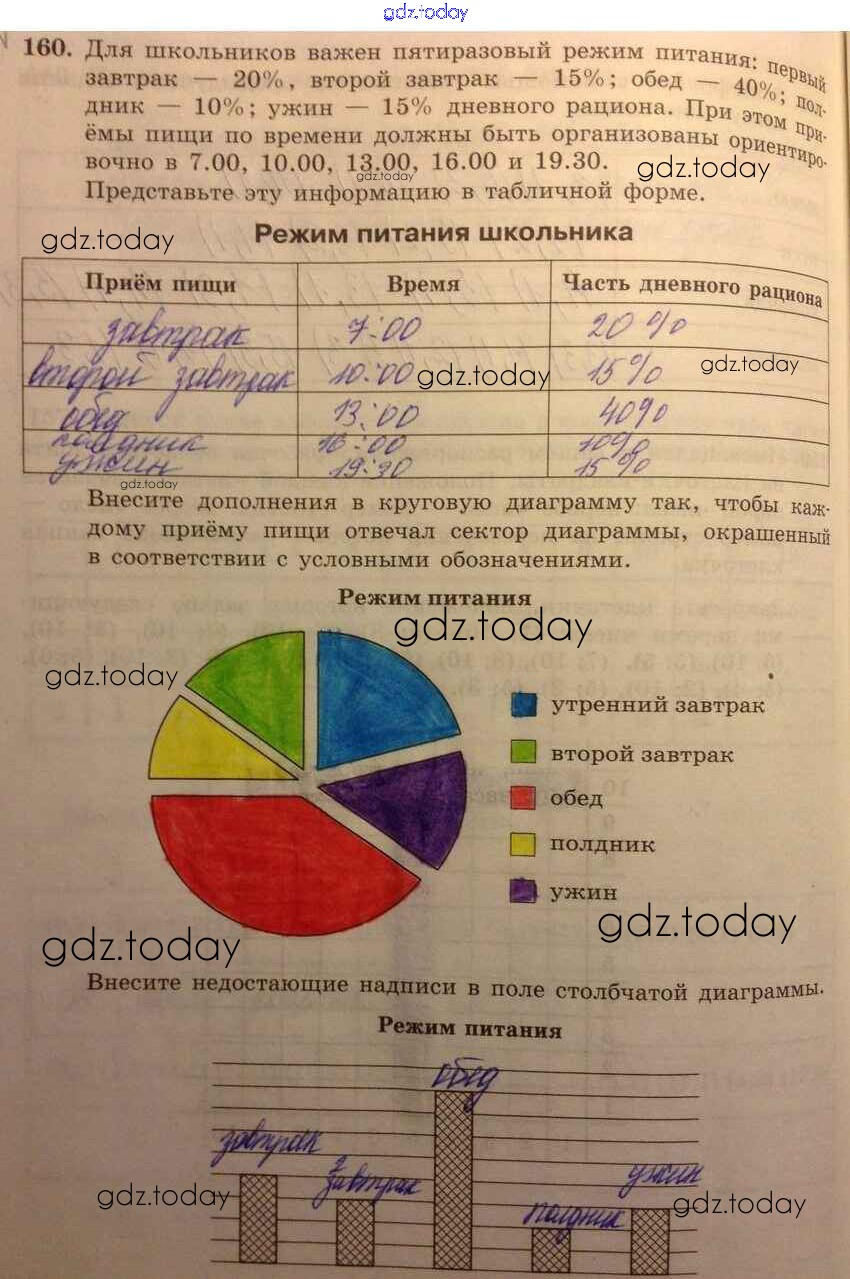 gdz.today
160. Для школьников важен пятиразовый режим питания: первый
завтрак — 20%, второй завтрак — 15%; обед — 40%; пол-
дник — 10%; ужин — 15% дневного рациона. При этом при-
ёмы пищи по времени должны быть организованы ориентиро-
вочно в 7.00, 10.00, 13.00, 16.00 и 19.30.
gdz.today
gdz.today
Представьте эту информацию в табличной форме.
gdz.today
Режим питания школьника
Приём пищи Время Часть дневного рациона
завтрак 7:00 20%
второй завтрак 10:00 15%
gdz.today
gdz.today
обед 13:00 40%
полдник 16:00 10%
ужин 19:30 15%
gdz.today
Внесите дополнения в круговую диаграмму так, чтобы каж-
дому приёму пищи отвечал сектор диаграммы, окрашенный
в соответствии с условными обозначениями.
Режим питания
gdz.today
gdz.today
утренний завтрак
второй завтрак
обед
полдник
ужин
gdz.today
gdz.today
Внесите недостающие надписи в поле столбчатой диаграммы.
Режим питания
обед
завтрак
2
завтрак
ужин
полдник
gdz.today
gdz.today